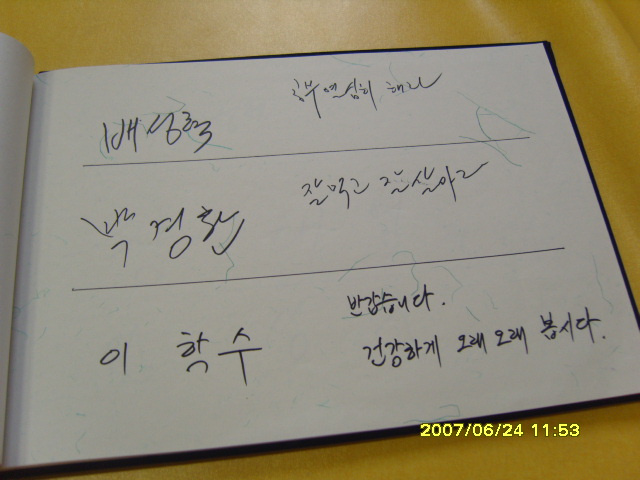 공부 열심히 해라
배성혁
잘먹고 잘살아라
박경환
반갑습니다.
이학수
건강하게 오래오래 봅시다.
2007/06/24 11:53